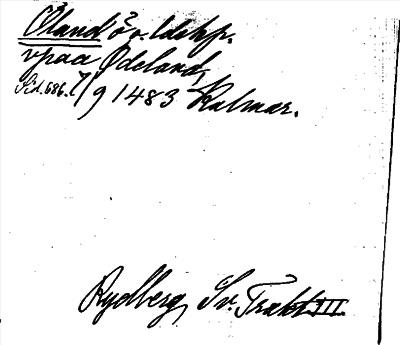 Öland ö o. ldskp.
vpaa Ødeland,
Sid. 686. 7/9 1483 Kalmar.
Rydberg, Sv. Trakt III.